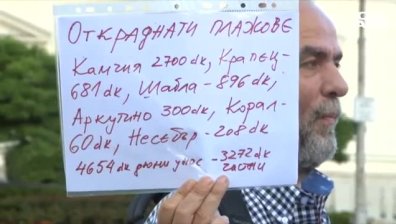 ОТКРАДНАТИ ПЛАЖОВЕ
Камчия 2700dк, Крапец-
681dк, Шабла - 896dк,
Аркутино 300dк, Корал-
60dк, Несебър - 208dк
4654dк дюни унос - 3272dк
частни